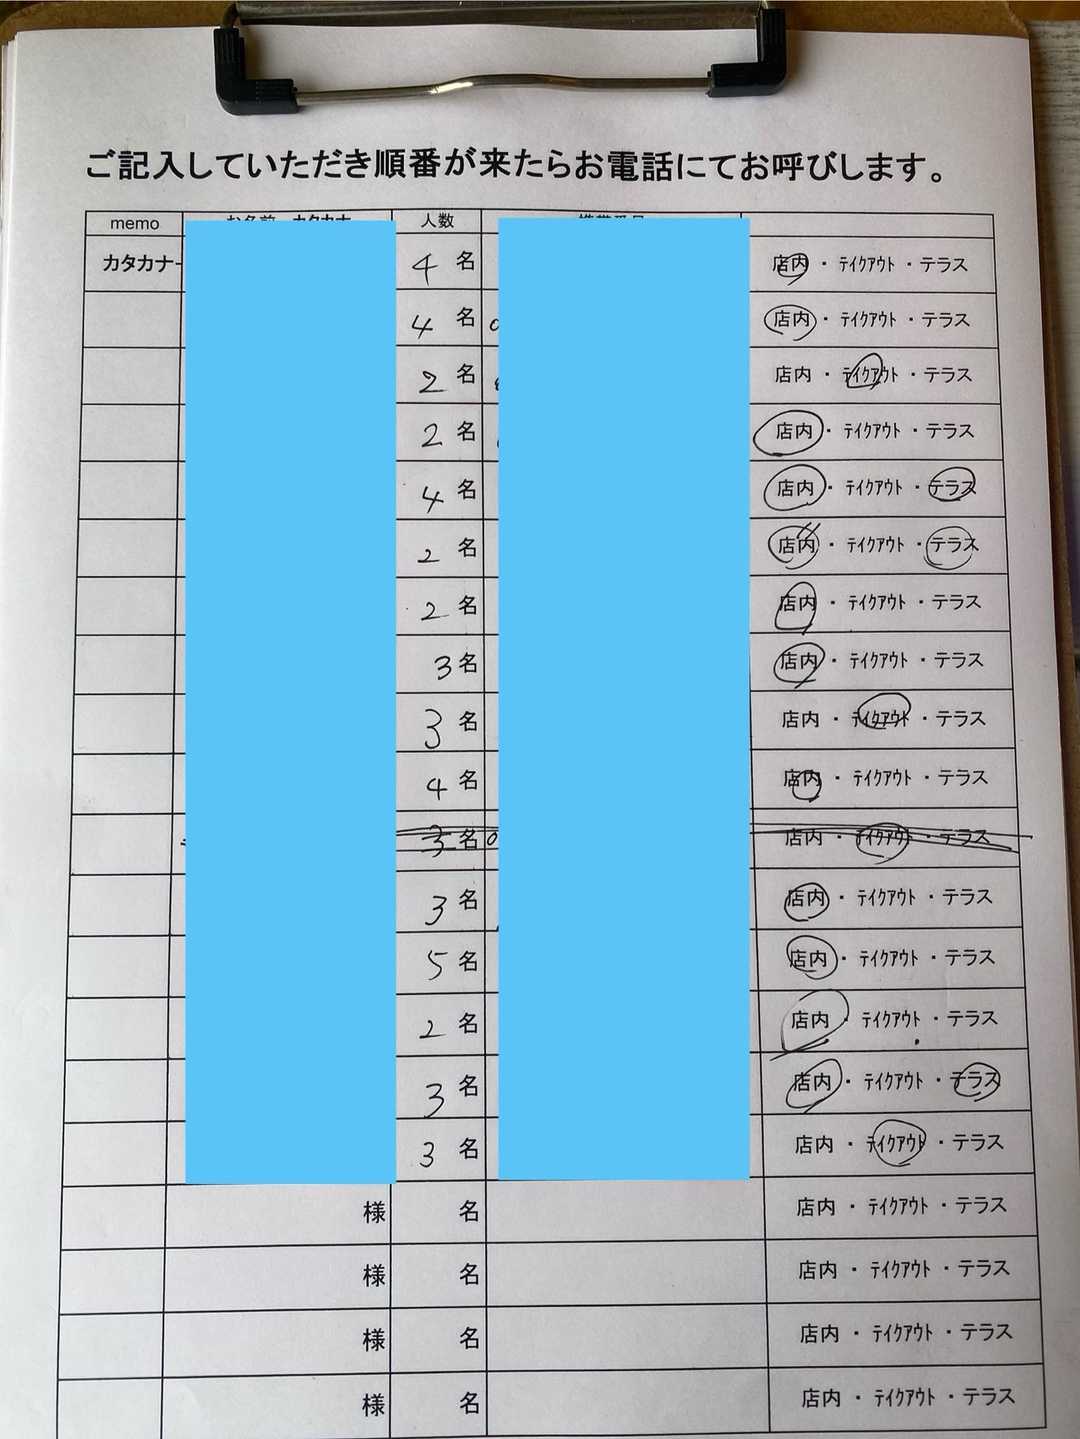 ご記入していただき順番が来たらお電話にてお呼びします。
memo 人数
カタカナ 4 名 店内 ・ テイクアウト ・ テラス
4 名 店内 ・ テイクアウト ・ テラス
2 名 店内 ・ テイクアウト ・ テラス
2 名 店内 ・ テイクアウト ・ テラス
4 名 店内 ・ テイクアウト ・ テラス
2 名 店内 ・ テイクアウト ・ テラス
2 名 店内 ・ テイクアウト ・ テラス
3 名 店内 ・ テイクアウト ・ テラス
3 名 店内 ・ テイクアウト ・ テラス
4 名 店内 ・ テイクアウト ・ テラス
3 名 店内 ・ テイクアウト ・ テラス
3 名 店内 ・ テイクアウト ・ テラス
5 名 店内 ・ テイクアウト ・ テラス
2 名 店内 ・ テイクアウト ・ テラス
3 名 店内 ・ テイクアウト ・ テラス
3 名 店内 ・ テイクアウト ・ テラス
様 名 店内 ・ テイクアウト ・ テラス
様 名 店内 ・ テイクアウト ・ テラス
様 名 店内 ・ テイクアウト ・ テラス
様 名 店内 ・ テイクアウト ・ テラス